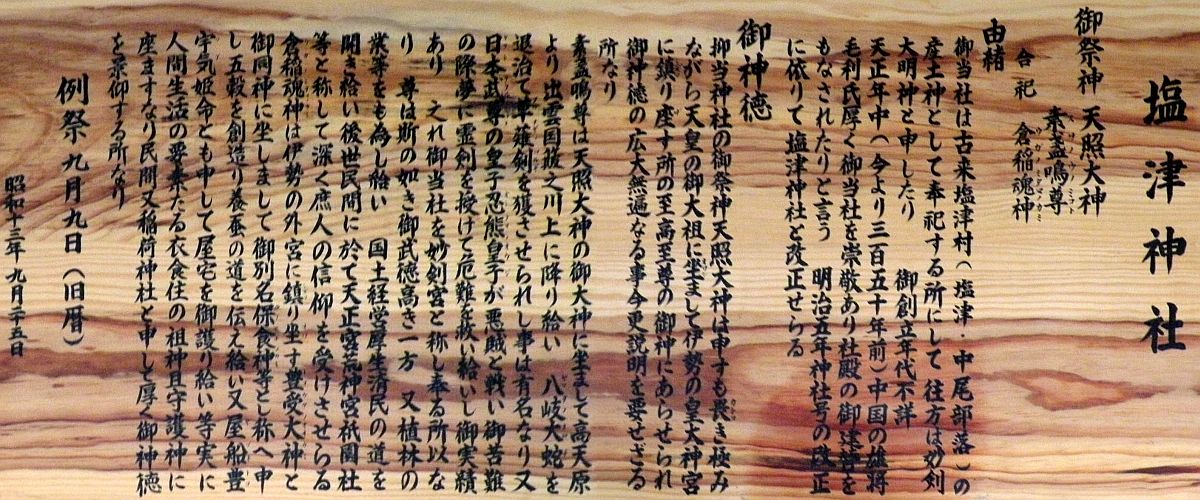 塩津神社
御祭神 天照大神
合祀 素盞鳴尊
スサノウノミコト
倉稲魂神
ウガノミタマノカミ
由緒
御当社は古来塩津村(塩津・中尾部落)の
産土神として奉祀する所にして往方は妙剣
大明神と申したり 御創立年代不詳
天正年中(今より三百五十年前)中国の雄将
毛利氏厚く御当社を崇敬あり社殿の御建替を
もなされたりと言う 明治五年神社号の改正
に依りて塩津神社と改正せらる
御神徳
抑当神社の御祭神天照大神は申すも畏き極み
ながら天皇の御大祖に坐まして伊勢の皇太神宮
に鎮り座す所の至高至尊の御神にあらせられ
御神徳の広大無遍なる事今更説明を要せざる
所なり
素盞鳴尊は天照大神の御大神に坐まして高天原
より出雲国簸之川上に降り給い 八岐大蛇を
退治て草薙剣を獲させられし事は有名なり又
日本武尊の皇子忍熊皇子が悪賊と戦い御苦難
の際夢に霊剣を授けて厄難を救い給いし御実績
あり 之れ御当社を妙剣宮と称し奉る所以な
り 尊は斯の如き御武徳高き一方 又植林の
業等をも為し給い 国土経営厚生済民の道を
開き給い後世民間に於て天正宮荒神宮祇園社
等と称して深く庶人の信仰を受けさせらる
倉稲魂神は伊勢の外宮に鎮り坐す豊受大神と
御同神に坐しまして御別名保食神等とし称へ申
し五穀を創造り養蚕の道を伝え給い又屋船豊
宇気姫命とも申して屋宅を御護り給い等実に
人間生活の要素たる衣食住の祖神且守護神に
座ますなり民間又稲荷神社と申して厚く御神徳
を景仰する所なり
例祭 九月九日(旧暦)
昭和十三年九月二十五日